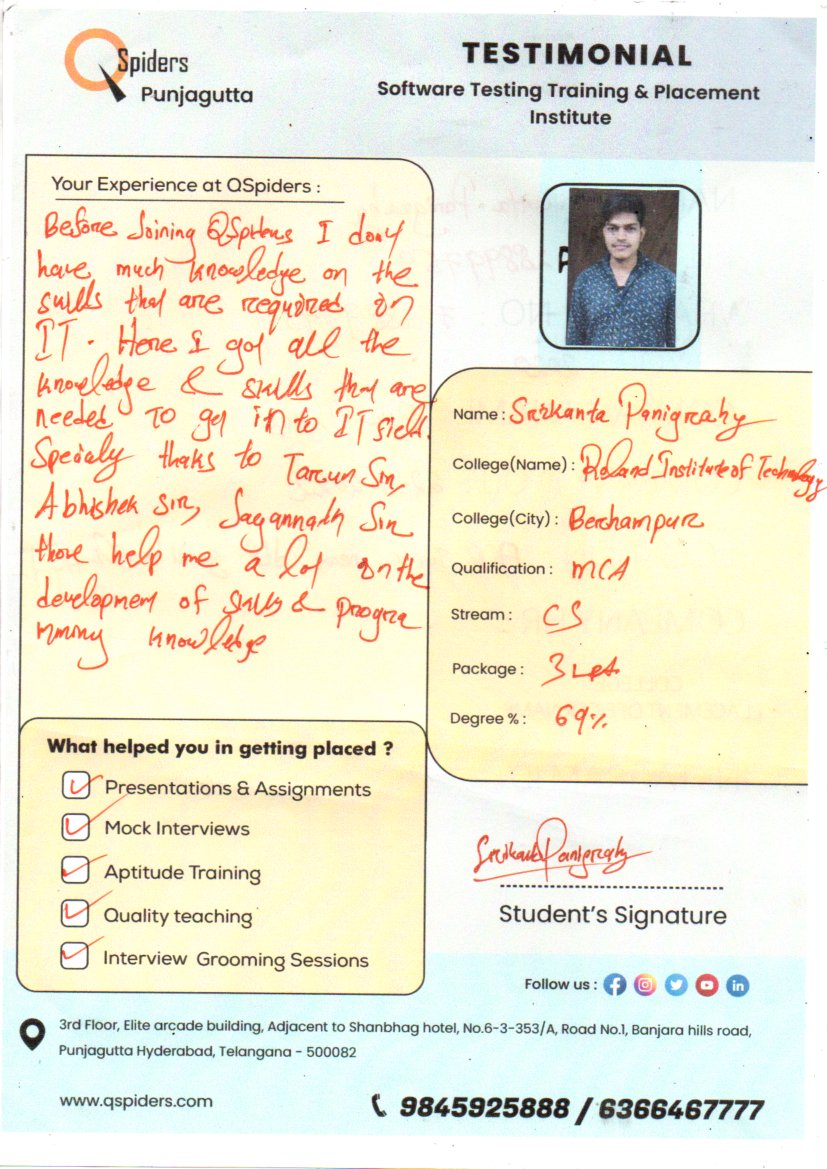 QSpiders
Punjagutta
TESTIMONIAL
Software Testing Training & Placement
Institute
Your Experience at QSpiders :
Before Joining QSpiders I dont
have much knowledge on the
skills that are required on
IT. Here I got all the
knowledge & skills that are
needed To get in to IT field.
Specialy thaks to Tarun Sir,
Abhishek sir, Jagannath Sir
those help me a lot on the
development of skills & progra
mming knowledge
Name : Srikanta Panigrahy
College(Name) : Roland Institute of Technology
College(City) : Berhampur
Qualification : MCA
Stream : CS
Package : 3 LPA
Degree % : 69%
What helped you in getting placed ?
Presentations & Assignments
Mock Interviews
Aptitude Training
Quality teaching
Interview Grooming Sessions
Srikanta Panigrahy
Student's Signature
Follow us :
3rd Floor, Elite arcade building, Adjacent to Shanbhag hotel, No.6-3-353/A, Road No.1, Banjara hills road,
Punjagutta Hyderabad, Telangana - 500082
www.qspiders.com
9845925888 / 6366467777